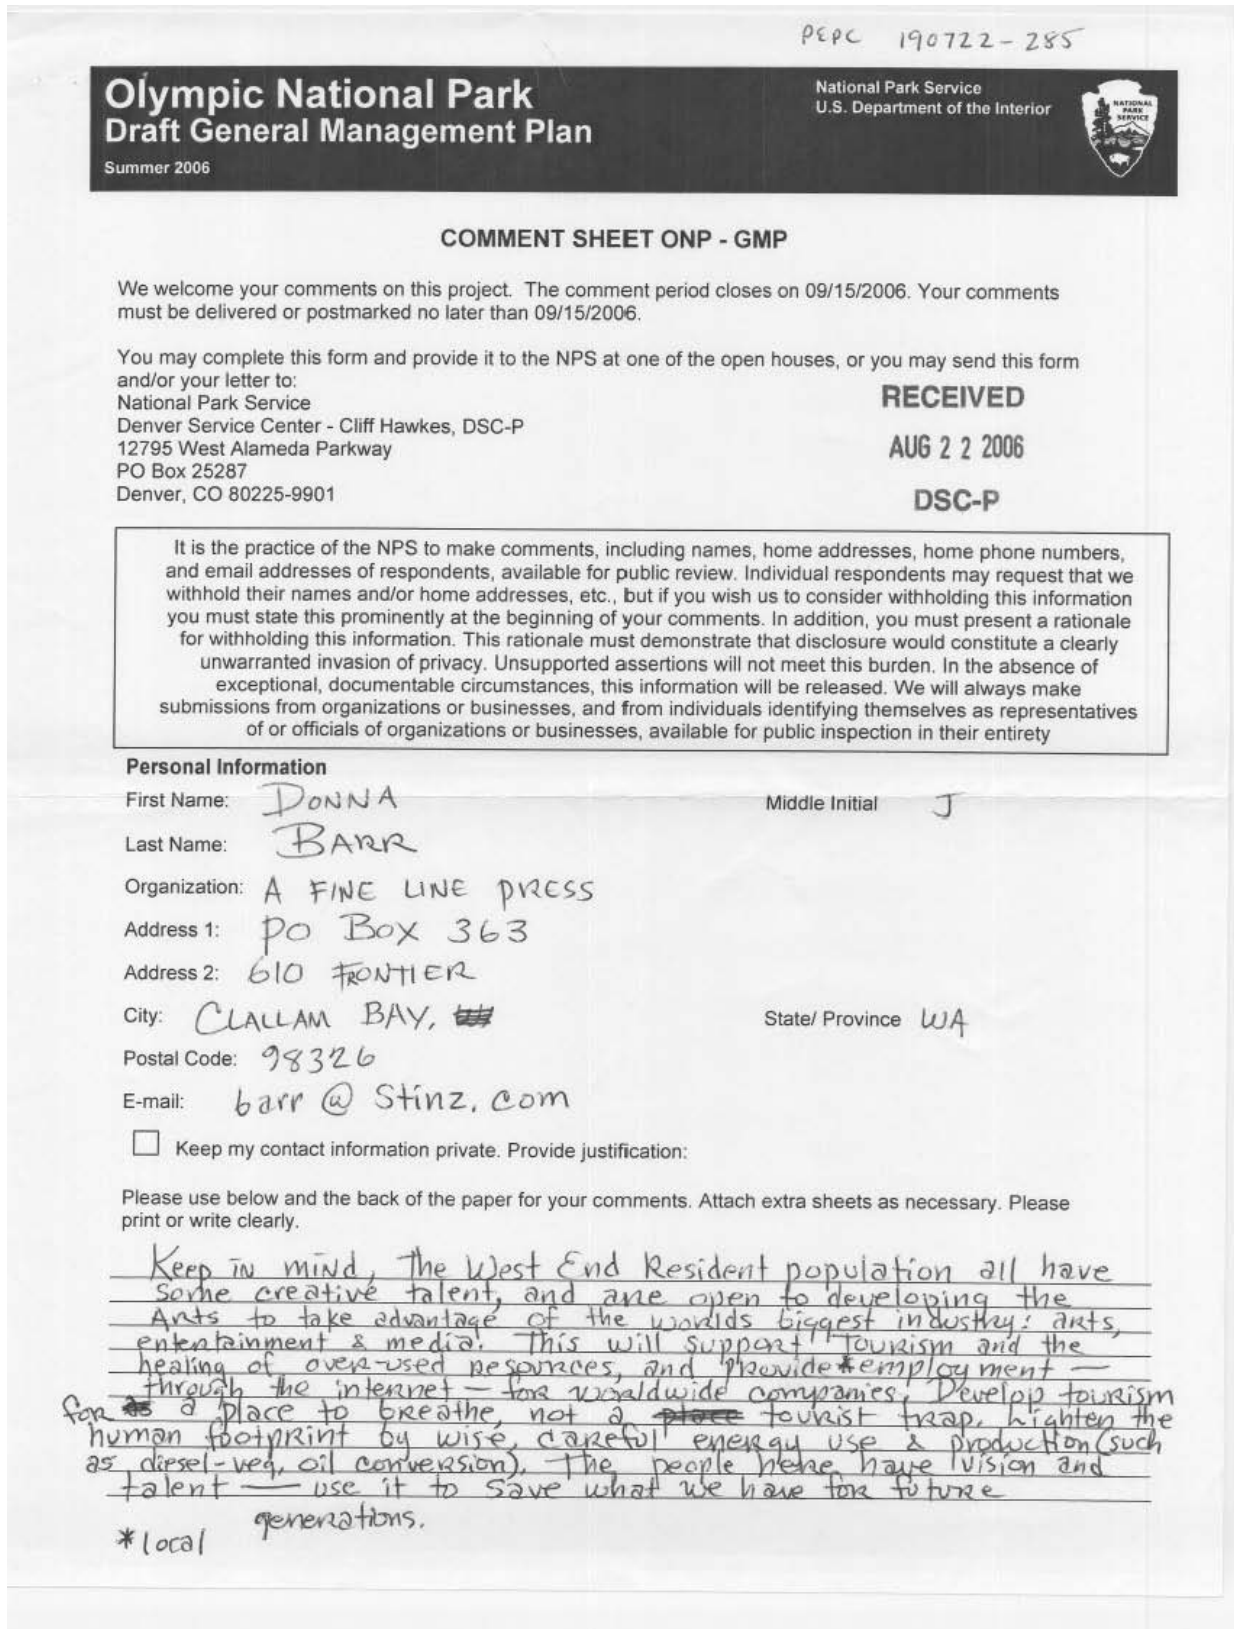 PEPC 190722-285
Olympic National Park
Draft General Management Plan
Summer 2006
National Park Service
U.S. Department of the Interior
NATIONAL
PARK
SERVICE
COMMENT SHEET ONP - GMP
We welcome your comments on this project. The comment period closes on 09/15/2006. Your comments
must be delivered or postmarked no later than 09/15/2006.
You may complete this form and provide it to the NPS at one of the open houses, or you may send this form
and/or your letter to:
National Park Service
Denver Service Center - Cliff Hawkes, DSC-P
12795 West Alameda Parkway
PO Box 25287
Denver, CO 80225-9901
RECEIVED
AUG 22 2006
DSC-P
It is the practice of the NPS to make comments, including names, home addresses, home phone numbers,
and email addresses of respondents, available for public review. Individual respondents may request that we
withhold their names and/or home addresses, etc., but if you wish us to consider withholding this information
you must state this prominently at the beginning of your comments. In addition, you must present a rationale
for withholding this information. This rationale must demonstrate that disclosure would constitute a clearly
unwarranted invasion of privacy. Unsupported assertions will not meet this burden. In the absence of
exceptional, documentable circumstances, this information will be released. We will always make
submissions from organizations or businesses, and from individuals identifying themselves as representatives
of or officials of organizations or businesses, available for public inspection in their entirety
Personal Information
First Name: DONNA Middle Initial J
Last Name: BARR
Organization: A FINE LINE PRESS
Address 1: PO BOX 363
Address 2: 610 FRONTIER
City: CLALLAM BAY, State/ Province WA
Postal Code: 98326
E-mail: barr @ Stinz.com
Keep my contact information private. Provide justification:
Please use below and the back of the paper for your comments. Attach extra sheets as necessary. Please
print or write clearly.
Keep in mind, the West End Resident population all have
Some creative talent, and are open to developing the
Arts to take advantage of the worlds biggest industry: arts,
entertainment & media. This will support tourism and the
healing of over-used resources, and provide *employment —
through the internet — for worldwide companies. Develop tourism
for a place to breathe, not a tourist trap. Lighten the
human footprint by wise, careful energy use & production (such
as diesel-veg. oil conversion). The people here have vision and
talent — use it to save what we have for future
generations.
*local